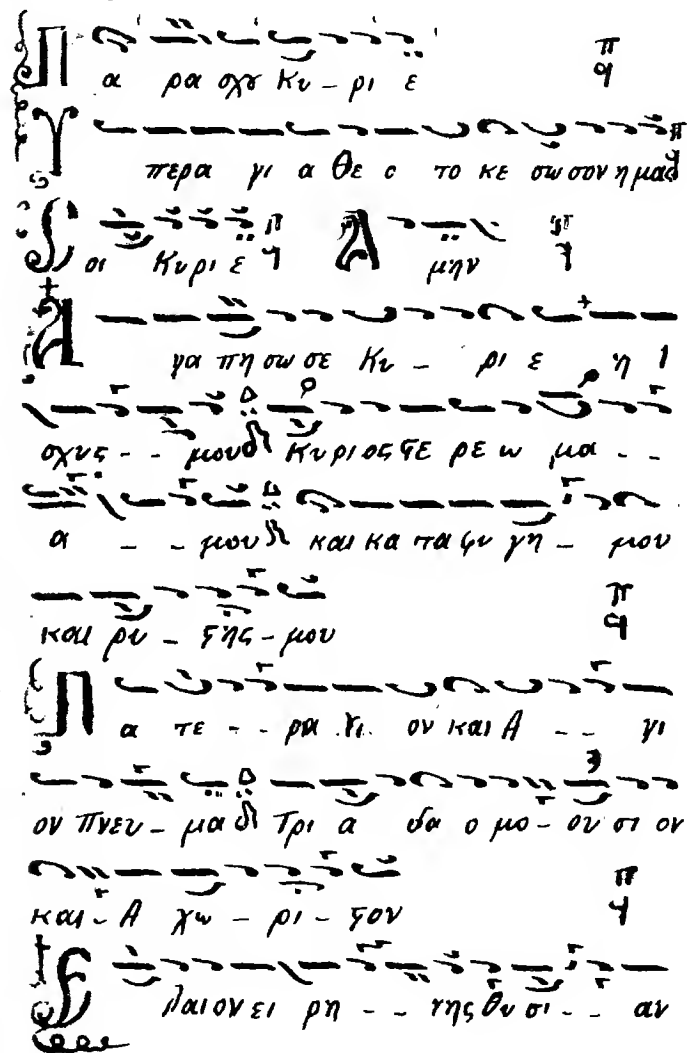 Πα ρα σχου Κυ - ρι ε
Υπερα γι α Θε ο το κε σω σον η μας
Σοι Κυρι ε Α μην
Αγα πη σω σε Κυ - ρι ε η ι
σχυς - - μου Κυριος στε ρε ω μα - -
α - - μου και κα τα φυ γη - μου
και ρυ - στης - μου
Πα τε - - ρα Υι ον και Α - - γι
ον Πνευ - μα Τρι α δα ο μο - ου σι ον
και - Α χω - ρι - στον
Ελαιον ει ρη - - νης θυ σι - - αν